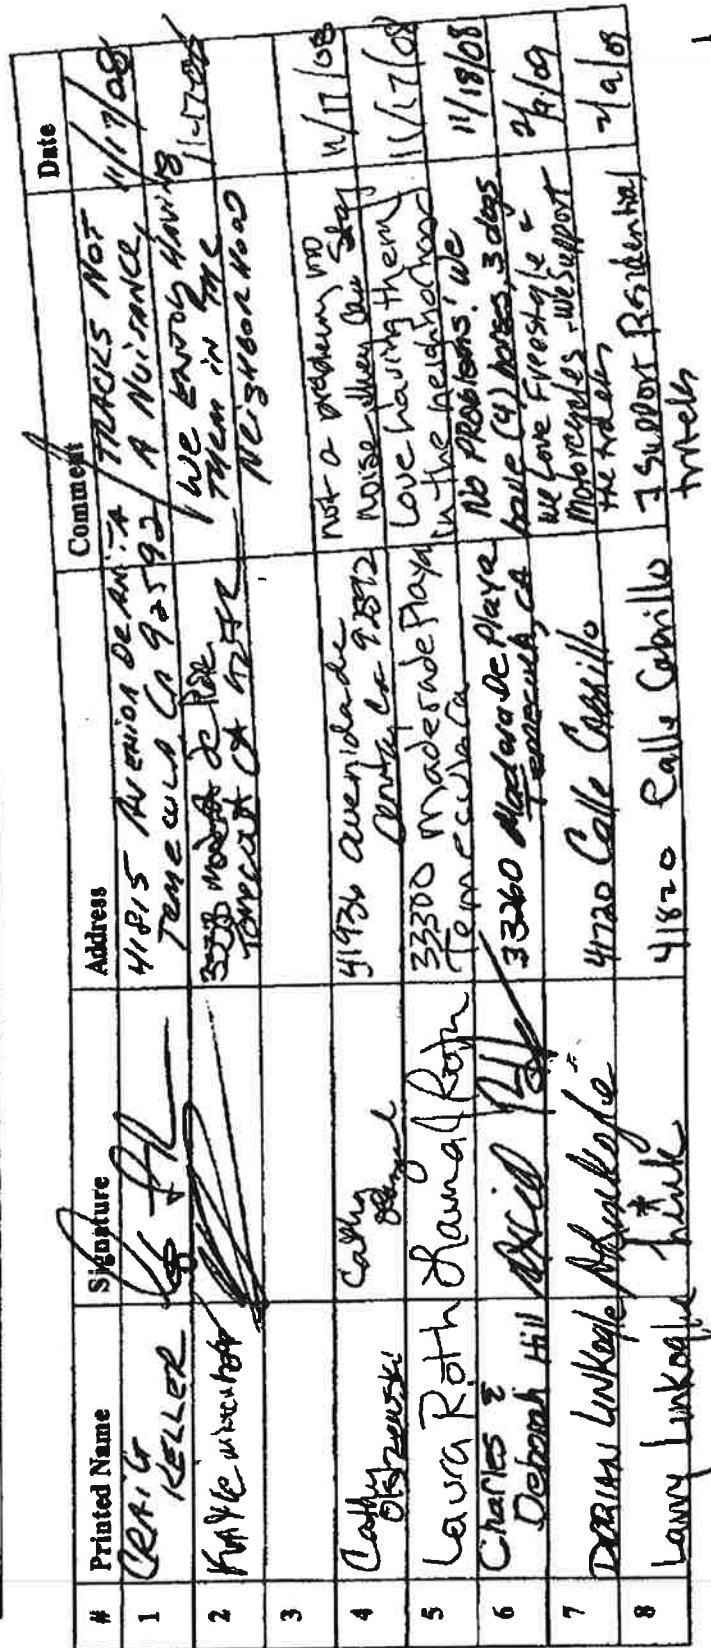 # Printed Name Signature Address Comment Date
1 CRAIG KELLER 41815 AVENIDA DE ANITA TEMECULA CA 92592 TRACKS NOT A NUISANCE, 11/17/08
2 WE ENJOY HAVING THEM IN THE NEIGHBORHOOD 11-17-08
3
4 Cathy Olszewski Cathy 41936 avenida de anita Ca 92592 not a problem no noise they can stay 11/17/08
5 Laura Roth Laura Roth 33300 Madera de Playa Temecula Ca Love having them in the neighborhood 11/17/08
6 Charles & Deborah Hill 33260 Madera De Playa Temecula, CA No PROBlems! we have (4) horses, 3 dogs 11/18/08
7 DORIAN LINKOGLE 41720 Calle Cabrillo We Love Freestyle & Motorcycles - We Support the tracks 2/9/09
8 Larry Linkogle Link 41820 Calle Cabrillo I Support Residential tracks 2/9/09